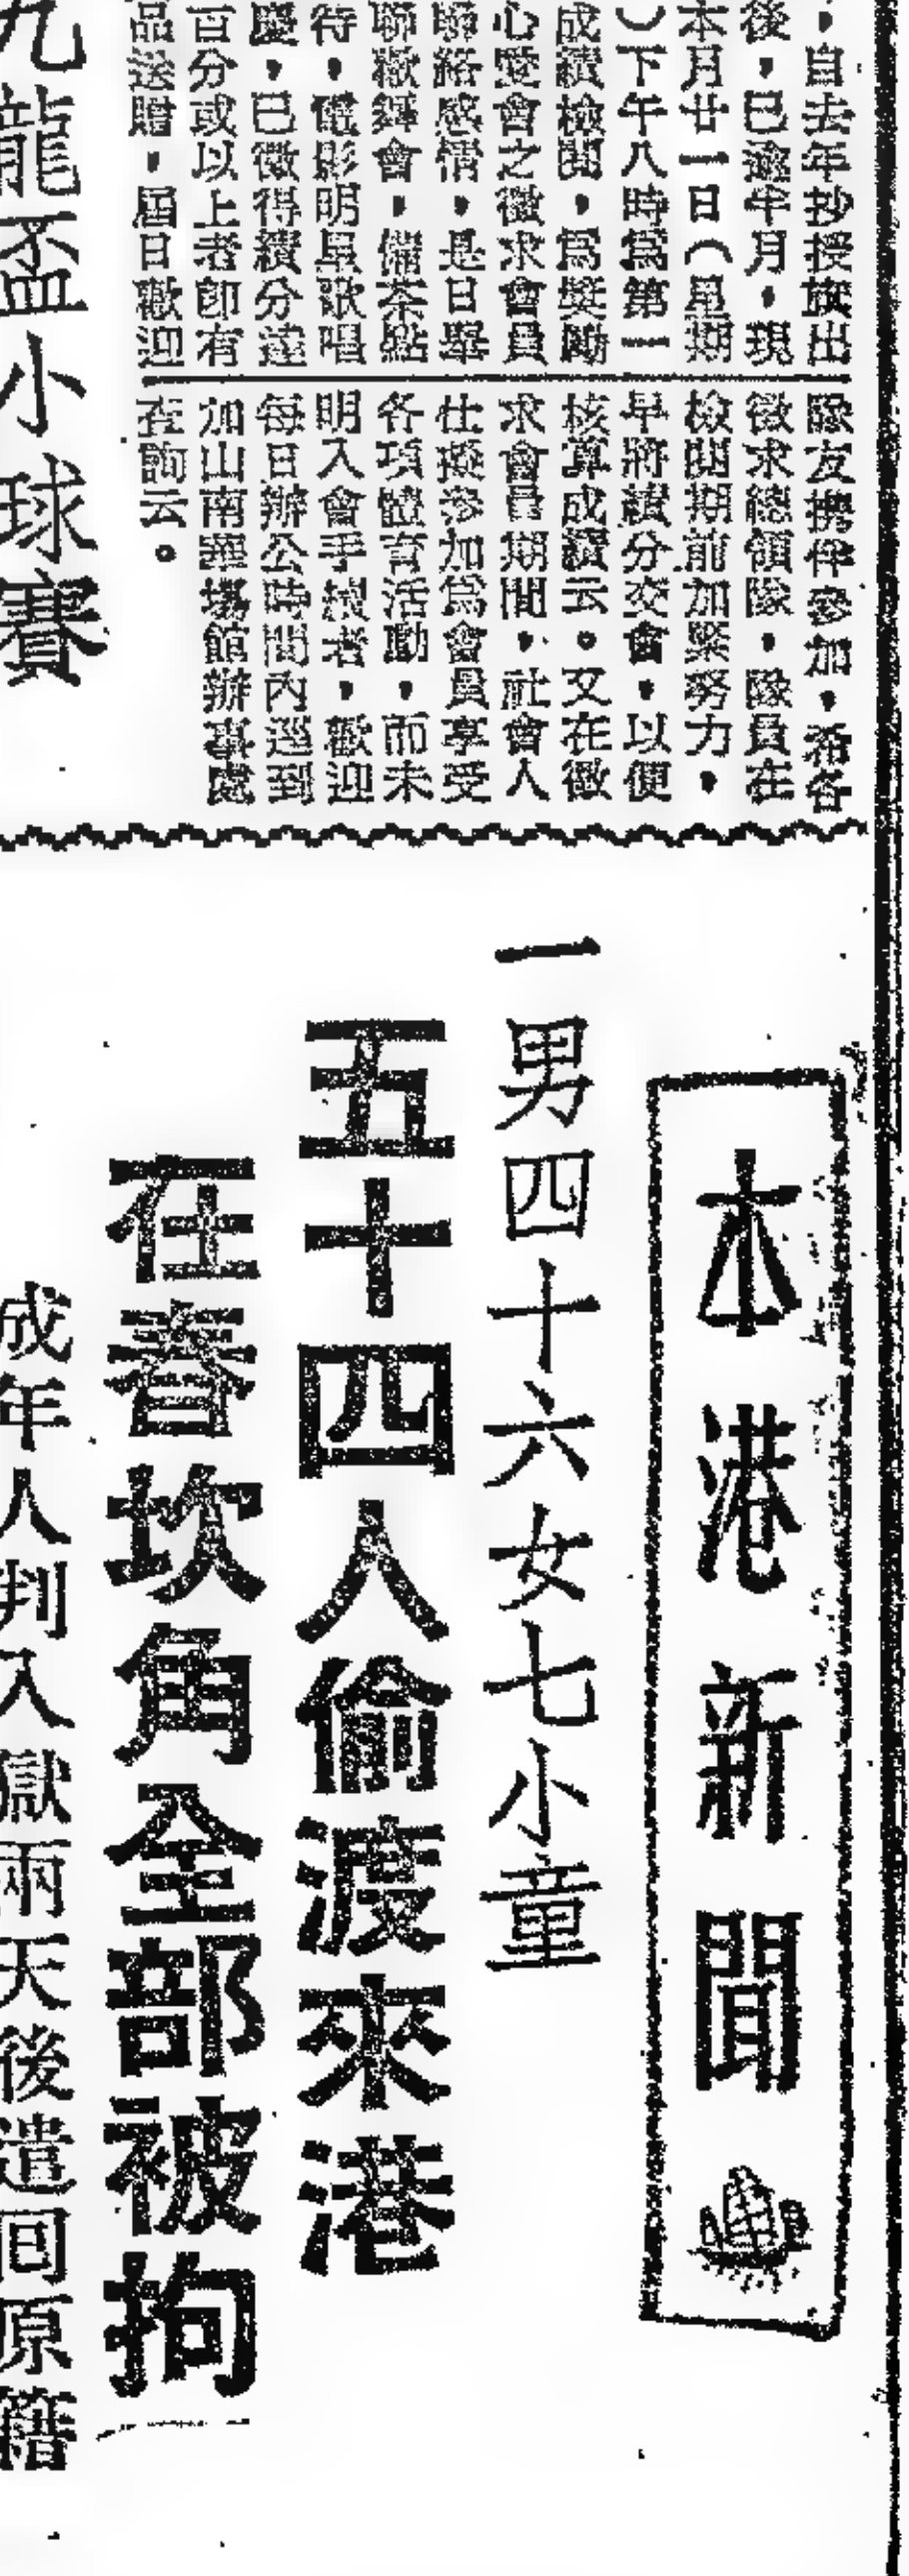 ，自去年抄授旗出
後，已逾半月，現
本月廿一日（星期
）下午八時為第一
成績檢閱，為奬勵
心愛會之徵求會員
聯絡感情，是日舉
聯歡舞會，備茶點
待，電影明星歌唱
慶，已徵得績分達
百分或以上者卽有
品送贈，屆日歡迎
隊友携伴參加，希各
徵求總領隊，隊員在
檢閱期前加緊努力，
早將績分交會，以便
核算成績云。又在徵
求會員期間，社會人
仕擬參加為會員享受
各項體育活動，而未
明入會手續者，歡迎
每日辦公時間內逕到
加山南華塲館辦事處
查詢云。
九龍盃小球賽
本港新聞
一男四十六女七小童
五十四人偷渡來港
在舂坎角全部被拘
成年人判入獄兩天後遣回原籍